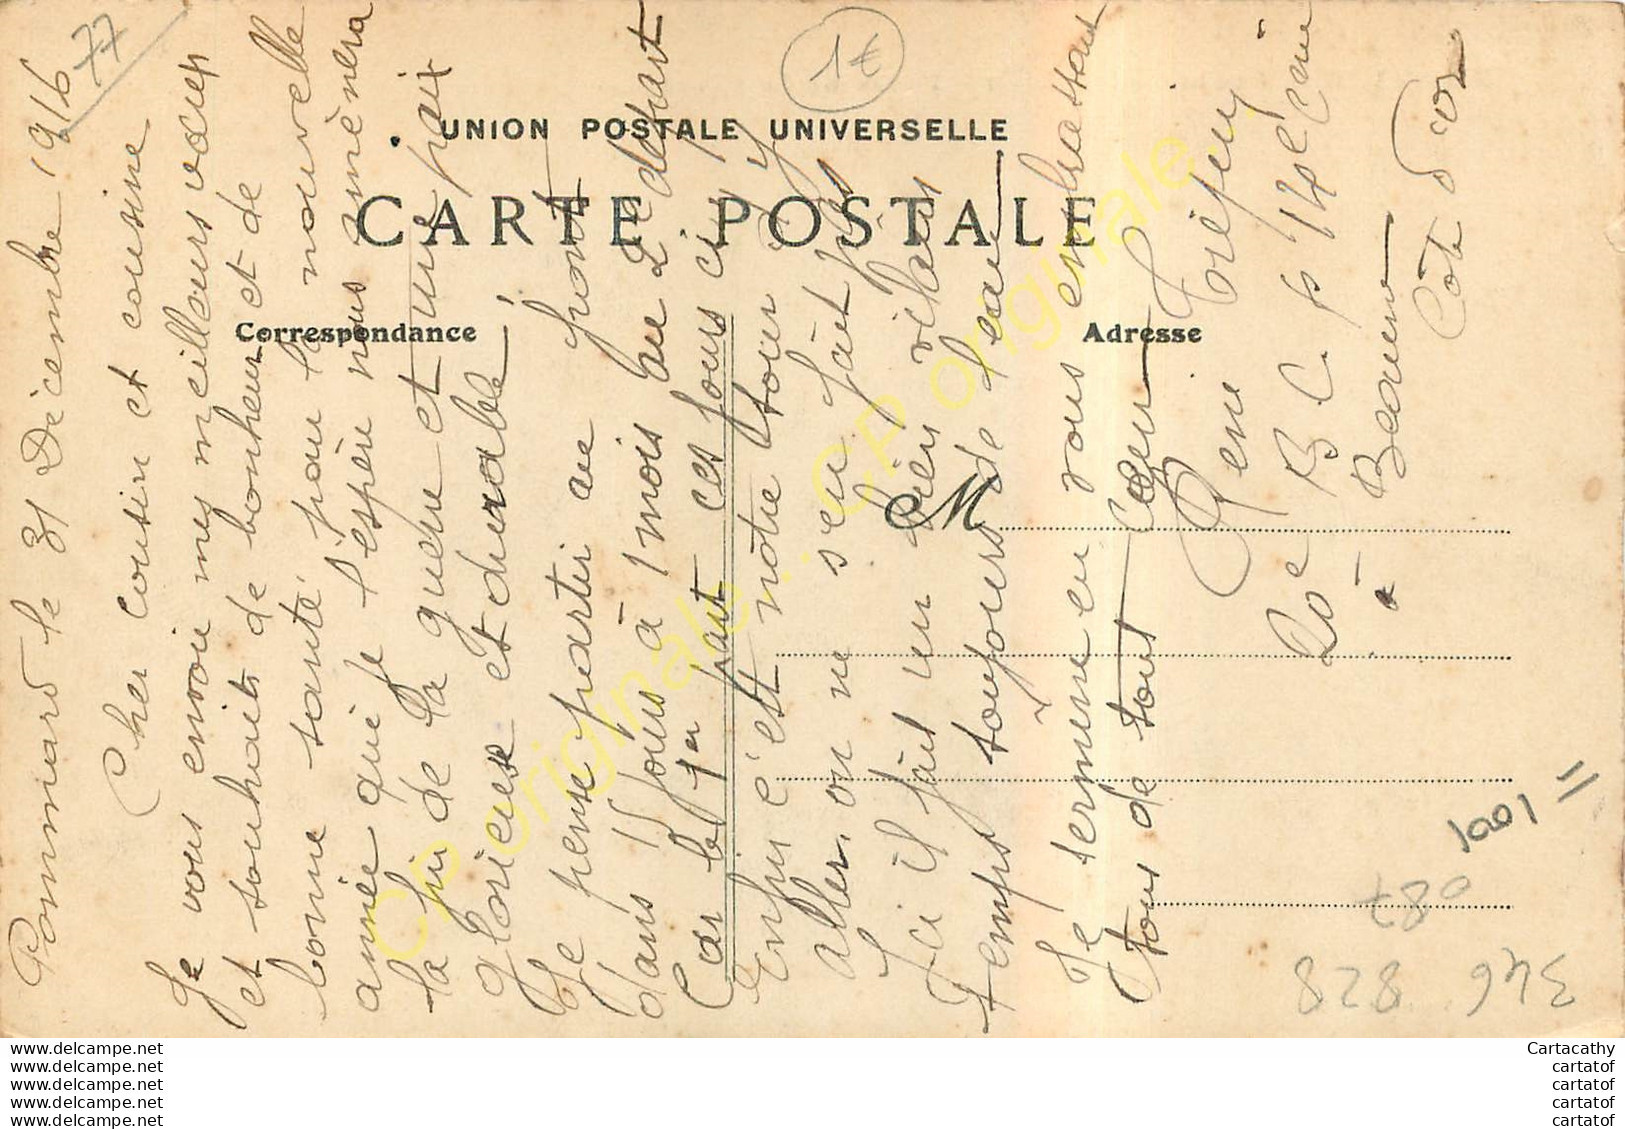 77
1€
UNION POSTALE UNIVERSELLE
CARTE POSTALE
Correspondance
Adresse
M
Pommard le 31 Décembre 1916
Cher cousin et cousine
Je vous envoie mes meilleurs vœux
et souhaits de bonheur et de
bonne santé, pour la nouvelle
année que je l'espère nous amènera
la fin de la guerre et une paix
glorieuse et durable
Je pense partir au front
dans 15 jours à 1 mois au départ
Car le 1er part ces jours ci
Enfin c'est notre tour il y
aller, on ne s'en fait pas
Ici il fait un bien vilain
temps toujours de l'eau
Je termine en vous embrassant
tous de tout cœur
René
B C P 14e Cie
à Beaune
Côte d'or
1001 =
087
346 828
CP originale. CP originale. CP originale.
www.delcampe.net
www.delcampe.net
www.delcampe.net
www.delcampe.net
www.delcampe.net
Cartacathy
cartatof
cartatof
cartatof
cartatof